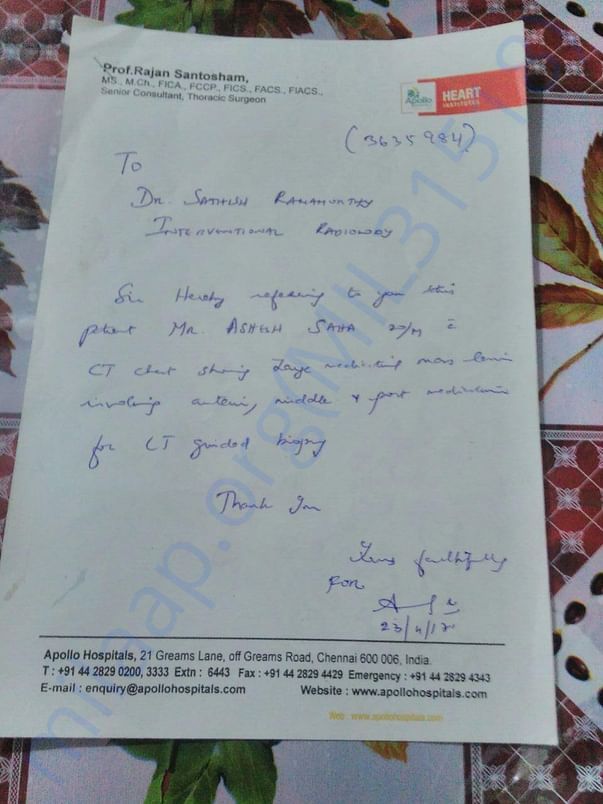 Prof.Rajan Santosham,
MS., M.Ch., FICA., FCCP., FICS., FACS., FIACS.,
Senior Consultant, Thoracic Surgeon
Apollo
HEART
INSTITUTES
(3635984)
To
Dr. SATHISH RAMAMURTHY
INTERVENTIONAL RADIOLOGY
Sir Hereby refering to you this
patient MR. ASHISH SAHA 20/M c̄
CT chest showing Large mediastinal mass
involving anterior, middle & post mediastinum
for CT guided biopsy
Thank You
Yours faithfully
FOR
23/4/18
Apollo Hospitals, 21 Greams Lane, off Greams Road, Chennai 600 006, India.
T : +91 44 2829 0200, 3333 Extn : 6443 Fax : +91 44 2829 4429 Emergency : +91 44 2829 4343
E-mail : enquiry@apollohospitals.com Website : www.apollohospitals.com
Web : www.apollohospitals.com
milaap.org(MIL3151